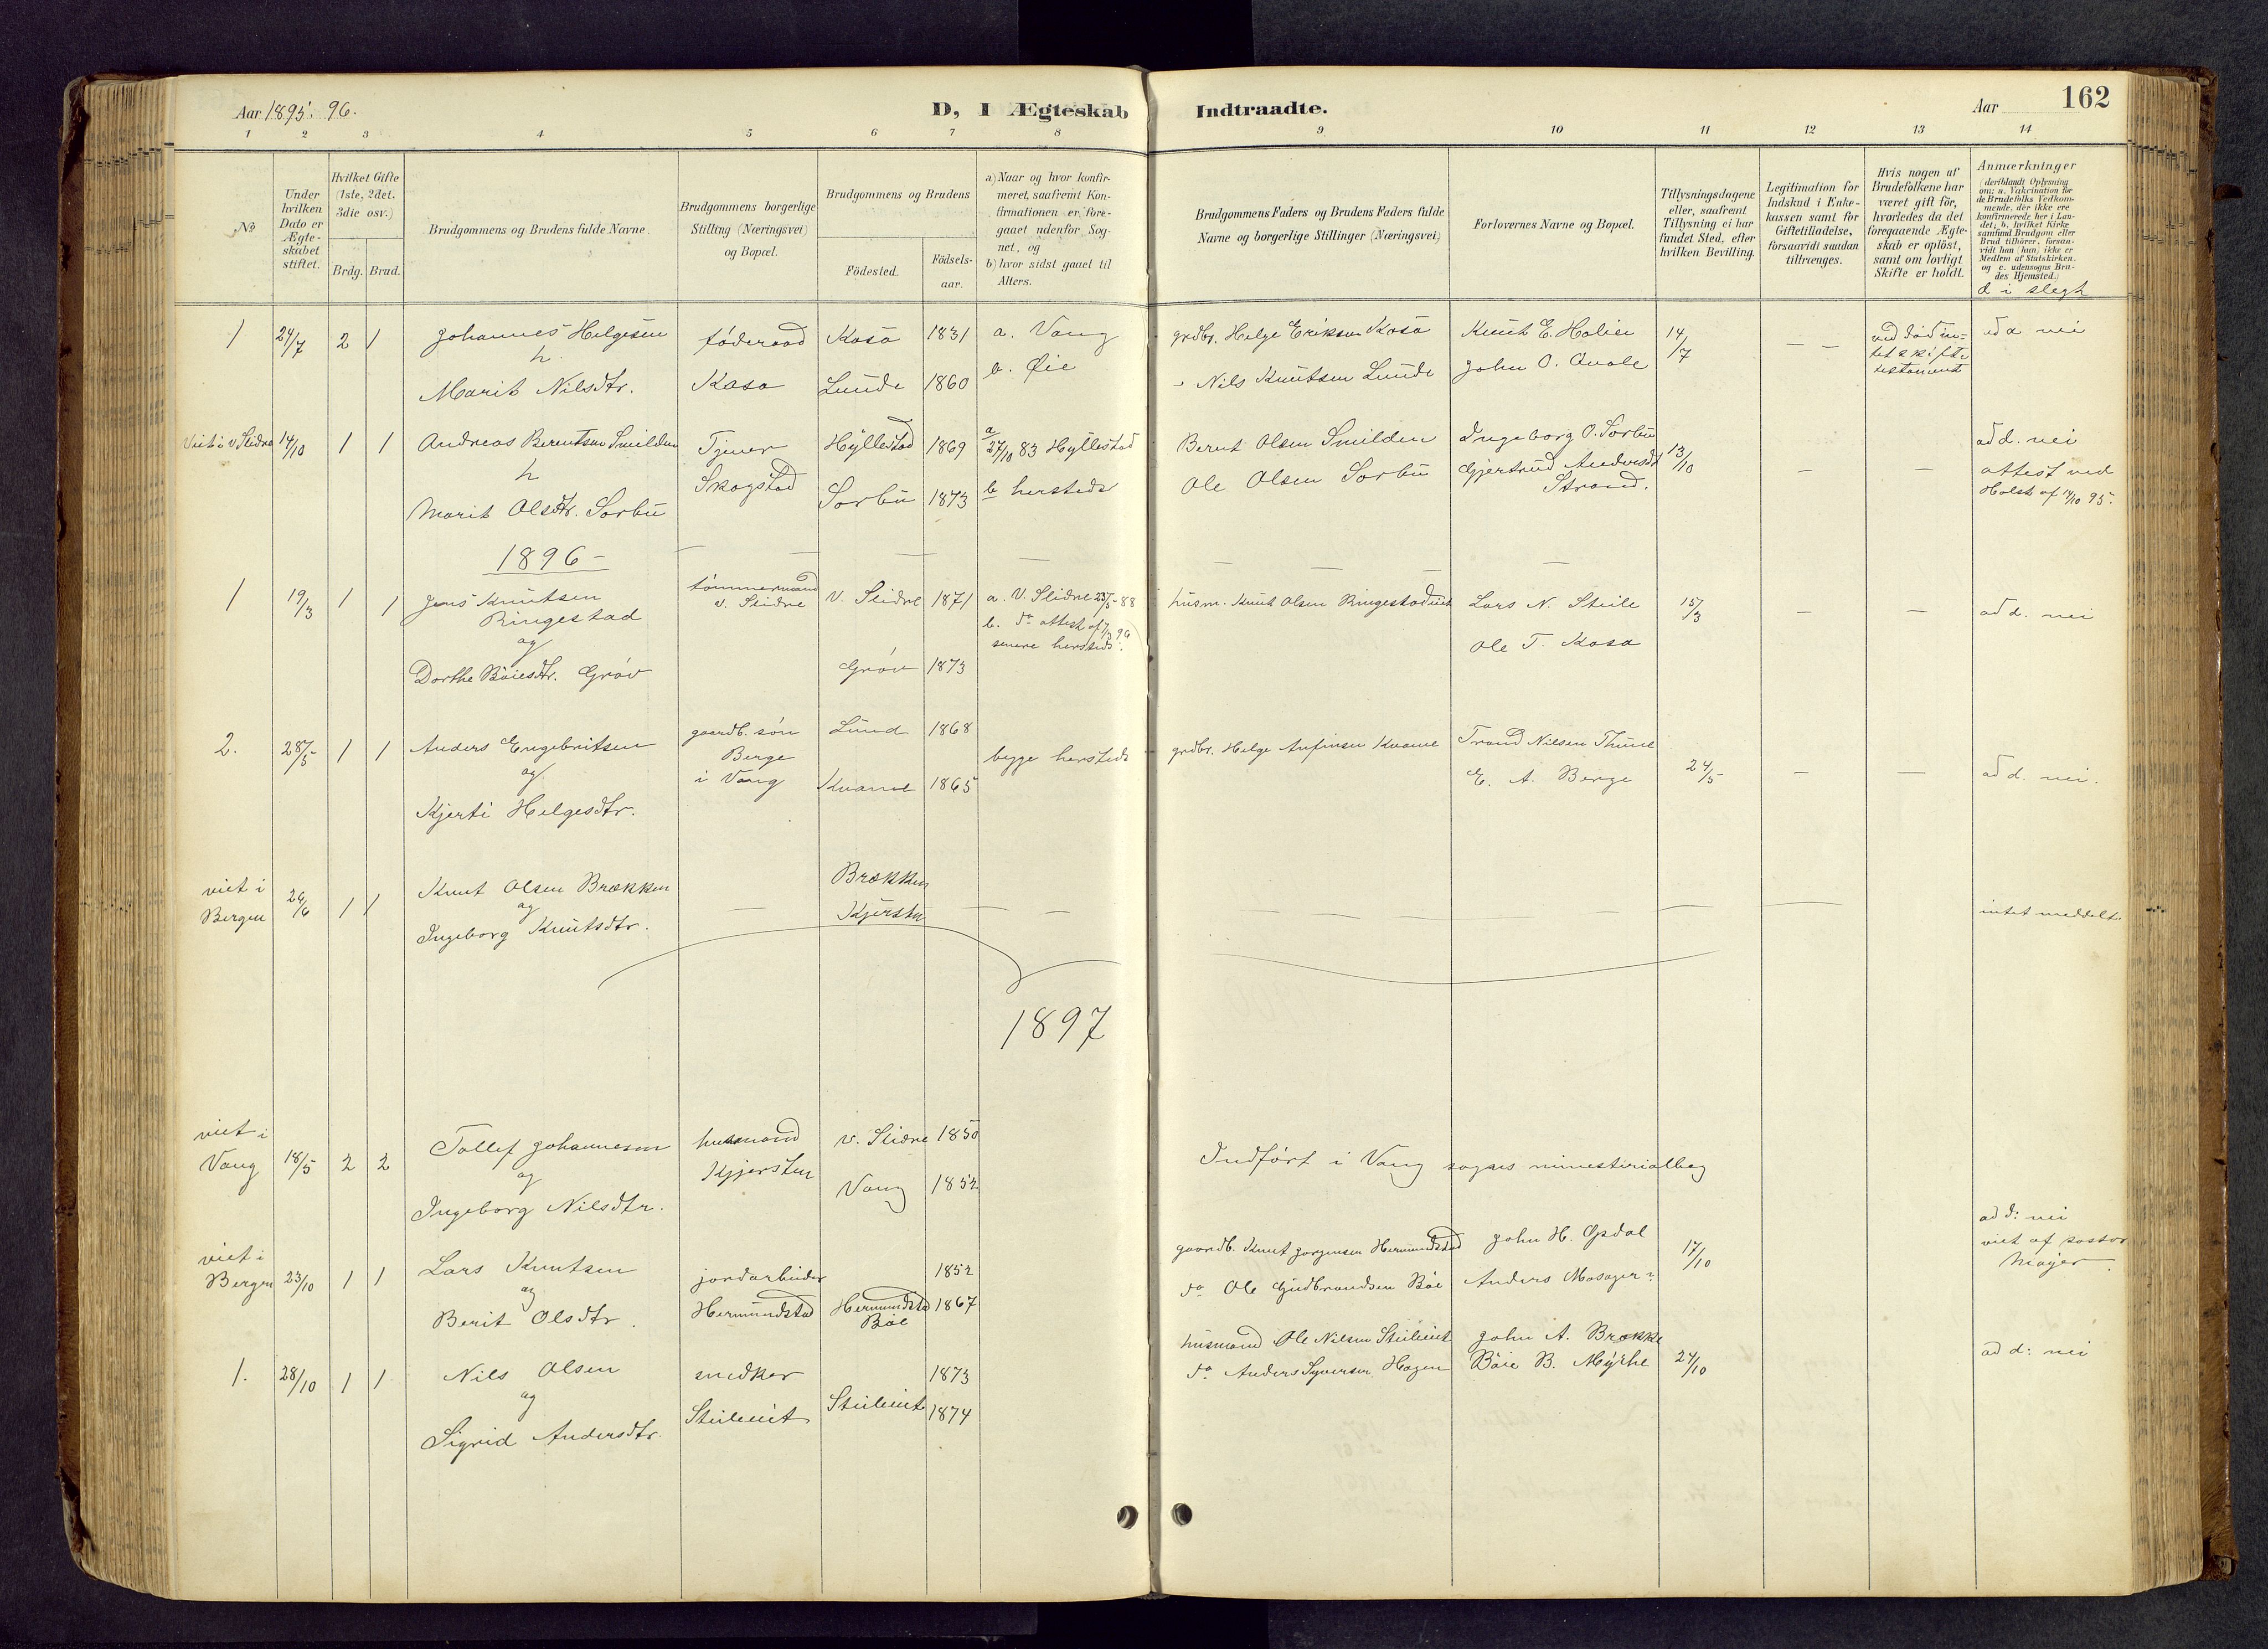 Aar 1895. 96.
D, I Ægteskab Indtraadte.
Aar 162
1 2 3 4 5 6 7 8 9 10 11 12 13 14
No
Under hvilken Dato er Ægteskabet stiftet.
Hvilket Gifte (1ste, 2det, 3die osv.)
Brdg. Brud.
Brudgommens og Brudens fulde Navne.
Brudgommens borgerlige Stilling (Næringsvei) og Bopæl.
Brudgommens og Brudens
Födested.
Födsels-aar.
a) Naar og hvor konfir-
meret, saafremt Kon-
firmationen er fore-
gaaet udenfor Sog-
net, og
b) hvor sidst gaaet til
Alters.
Brudgommens Faders og Brudens Faders fulde
Navne og borgerlige Stillinger (Næringsvei)
Forlovernes Navne og Bopæl.
Tillysningsdagene
eller, saafremt
Tillysning ei har
fundet Sted, efter
hvilken Bevilling.
Legitimation for
Indskud i Enke-
kassen samt for
Giftetilladelse,
forsaavidt saadan
tiltrænges.
Hvis nogen af
Brudefolkene har
været gift för,
hvorledes da det
foregaaende Ægte-
skab er oplöst,
samt om lovligt
Skifte er holdt.
Anmærkninger
(deriblandt Oplysning
om: a. Vakcination for
de Brudefolks Vedkom-
mende, der ikke ere
konfirmerede her i Lan-
det; b. hvilket Kirke
samfund Brudgom eller
Brud tilhörer, forsaa-
vidt han (hun) ikke er
Medlem af Statskirken.
og c. udensogns Bru-
des Hjemsted.)
d i slegt
1 24/7 2 1 Johannes Helgesen föderaad Kasa 1831 a. Vang grdbr. Helge Eriksen Kasa Knut E. Holien 14/7 — — ved död in-
tet skifte
testament
ad d nei
h.
Marit Nilsdtr. Kasa Lunde 1860 b. Øie " Nils Knutsen Lunde John O. Qvale
Viet i v Slidre 14/10 1 1 Andreas Berentsen Smilden Tjener Hyllestad 1869 a 27/10 83 Hyllestad Bernt Olsen Smilden Ingeborg O. Sörbu 13/10 — — ad d. nei
h
Marit Olsdtr. Sørbu Skogstad Sørbu 1873 b hersteds Ole Olsen Sørbu Gjertrud Andersdt
Strand.
attest ved
Holst af 14/10 95.
1896 —
1 19/3 1 1 Jens Knutsen
Ringestad
tömmermand
v. Slidre
V. Slidre 1871 a. V. Slidre 23/5-88
b. do attest af 7/3 96
senere hersteds.
husm. Knut Olsen Ringestadeiet Lars N. Steile 15/3 — — ad d. nei
og
Dorthe Böiesdtr. Gröv Gröv 1873 Ole T. Kasa
2. 28/5 1 1 Anders Engebritsen gaardb. sön
Berge
i Vang
Lund 1868 begge hersteds grdbr. Helge Anfinsen Kvame Trond Nilsen Thune 24/5 — — ad d. nei.
og
Kjerti Helgesdtr. Kvame 1865 E. A. Berge
viet i
Bergen 26/6 1 1 Knut Olsen Brækken Brækken
og
Ingeborg Knutsdtr. — Kjerstn — — — — — — intet meddelt.
1897
viet i
Vang 18/5 2 2 Tollef Johannesen husmand v. Slidre 1850
og
Ingeborg Nilsdtr. Kjersten Vang 1852
Indfört i Vang sogns ministerialbog
viet i
Bergen 23/10 1 1 Lars Knutsen jordarbeider 1852 gaardb. Knut Jorgensen Hermundstad John H. Opdal 17/10 ad d: nei
viet af pastor
Meyer.
og
Berit Olsdtr. Hermundstad Hermundstad
Böe
1867 do Ole Gudbrandsen Böe Anders Mosager
1. 28/10 1 1 Nils Olsen snedker 1873 husmand Ole Nilsen Steileeiet John A. Brække 24/10 ad d: nei
og
Sigrid Andersdtr. Steileeiet Steileeiet 1874 do Anders Syversen Hagen Böie B. Myhre